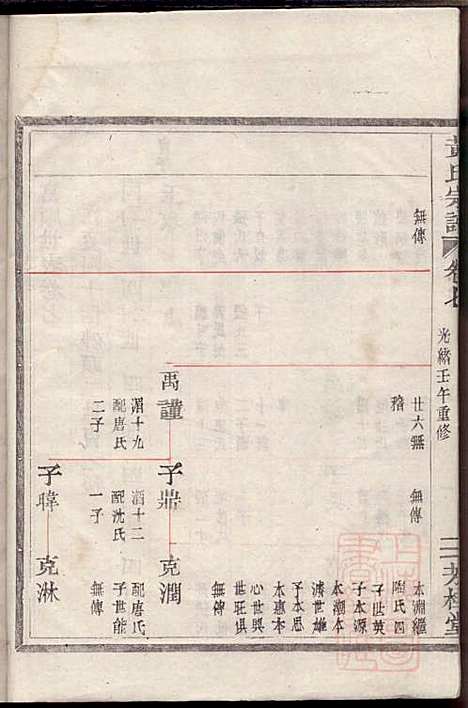 黃氏宗譜
卷七
光緒壬午重修
三
芳桂堂
無傳
廿六無
稽
無傳
本淵繼
陶氏四
子世英
子本源
本潮本
濤世雄
子本思
本惠本
心世興
世旺俱
無傳
禹謹
湄十九
配唐氏
二子
子鼎
酒十二
配沈氏
一子
克潤
配唐氏
子世能
無傳
子暐
克淋